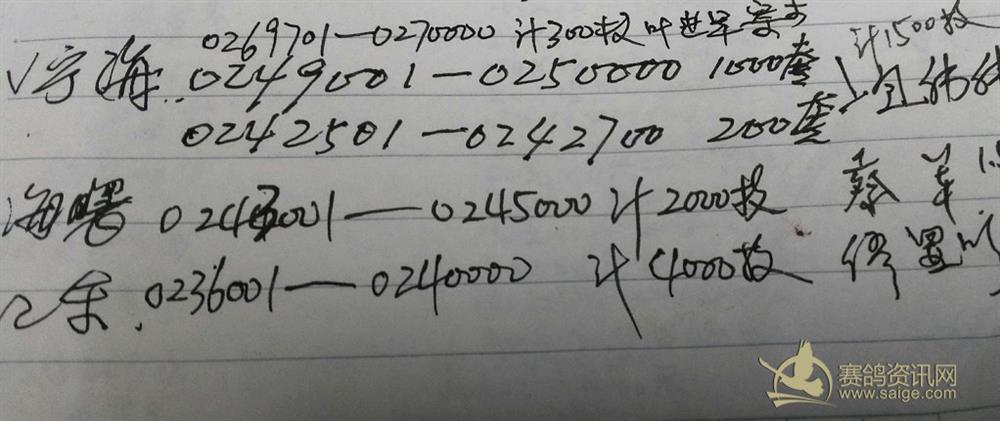 0269701—0270000 计300枚 叶世军
计1500枚
宁海 0249001—0250000 1000套
0242501—0242700 200套
海曙 0243001—0245000 计2000枚
余 0236001—0240000 计4000枚
赛鸽资讯网
www.saige.com